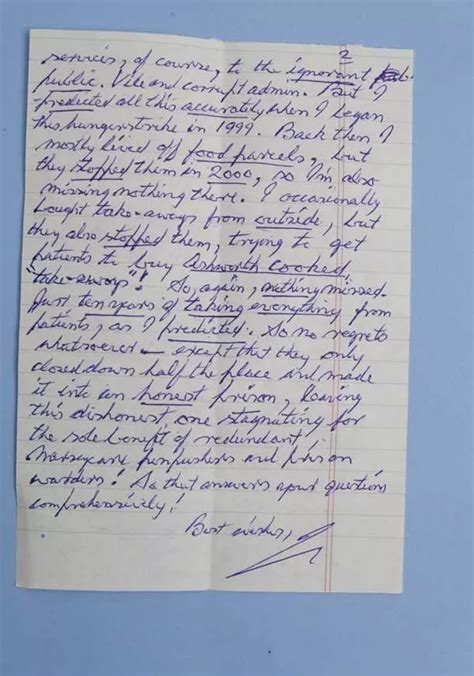 2
services, of course, to the ignorant
public. Vile and corrupt admin. But I
predicted all this accurately when I began
this hungerstrike in 1999. Back then I
mostly lived off food parcels, but
they stopped them in 2000, so I'm also
missing nothing there. I occasionally
bought take-aways from outside, but
they also stopped them, trying to get
patients to buy Ashworth cooked
"take-aways"! So, again, nothing missed.
Just ten years of taking everything from
patients, as I predicted. So no regrets
whatsoever — except that they only
closed down half the place and made
it into an honest prison, leaving
this dishonest one stagnating for
the sole benefit of redundant
Merseycare penpushers and prison
warders! So that answers your questions
comprehensively!
Best wishes,